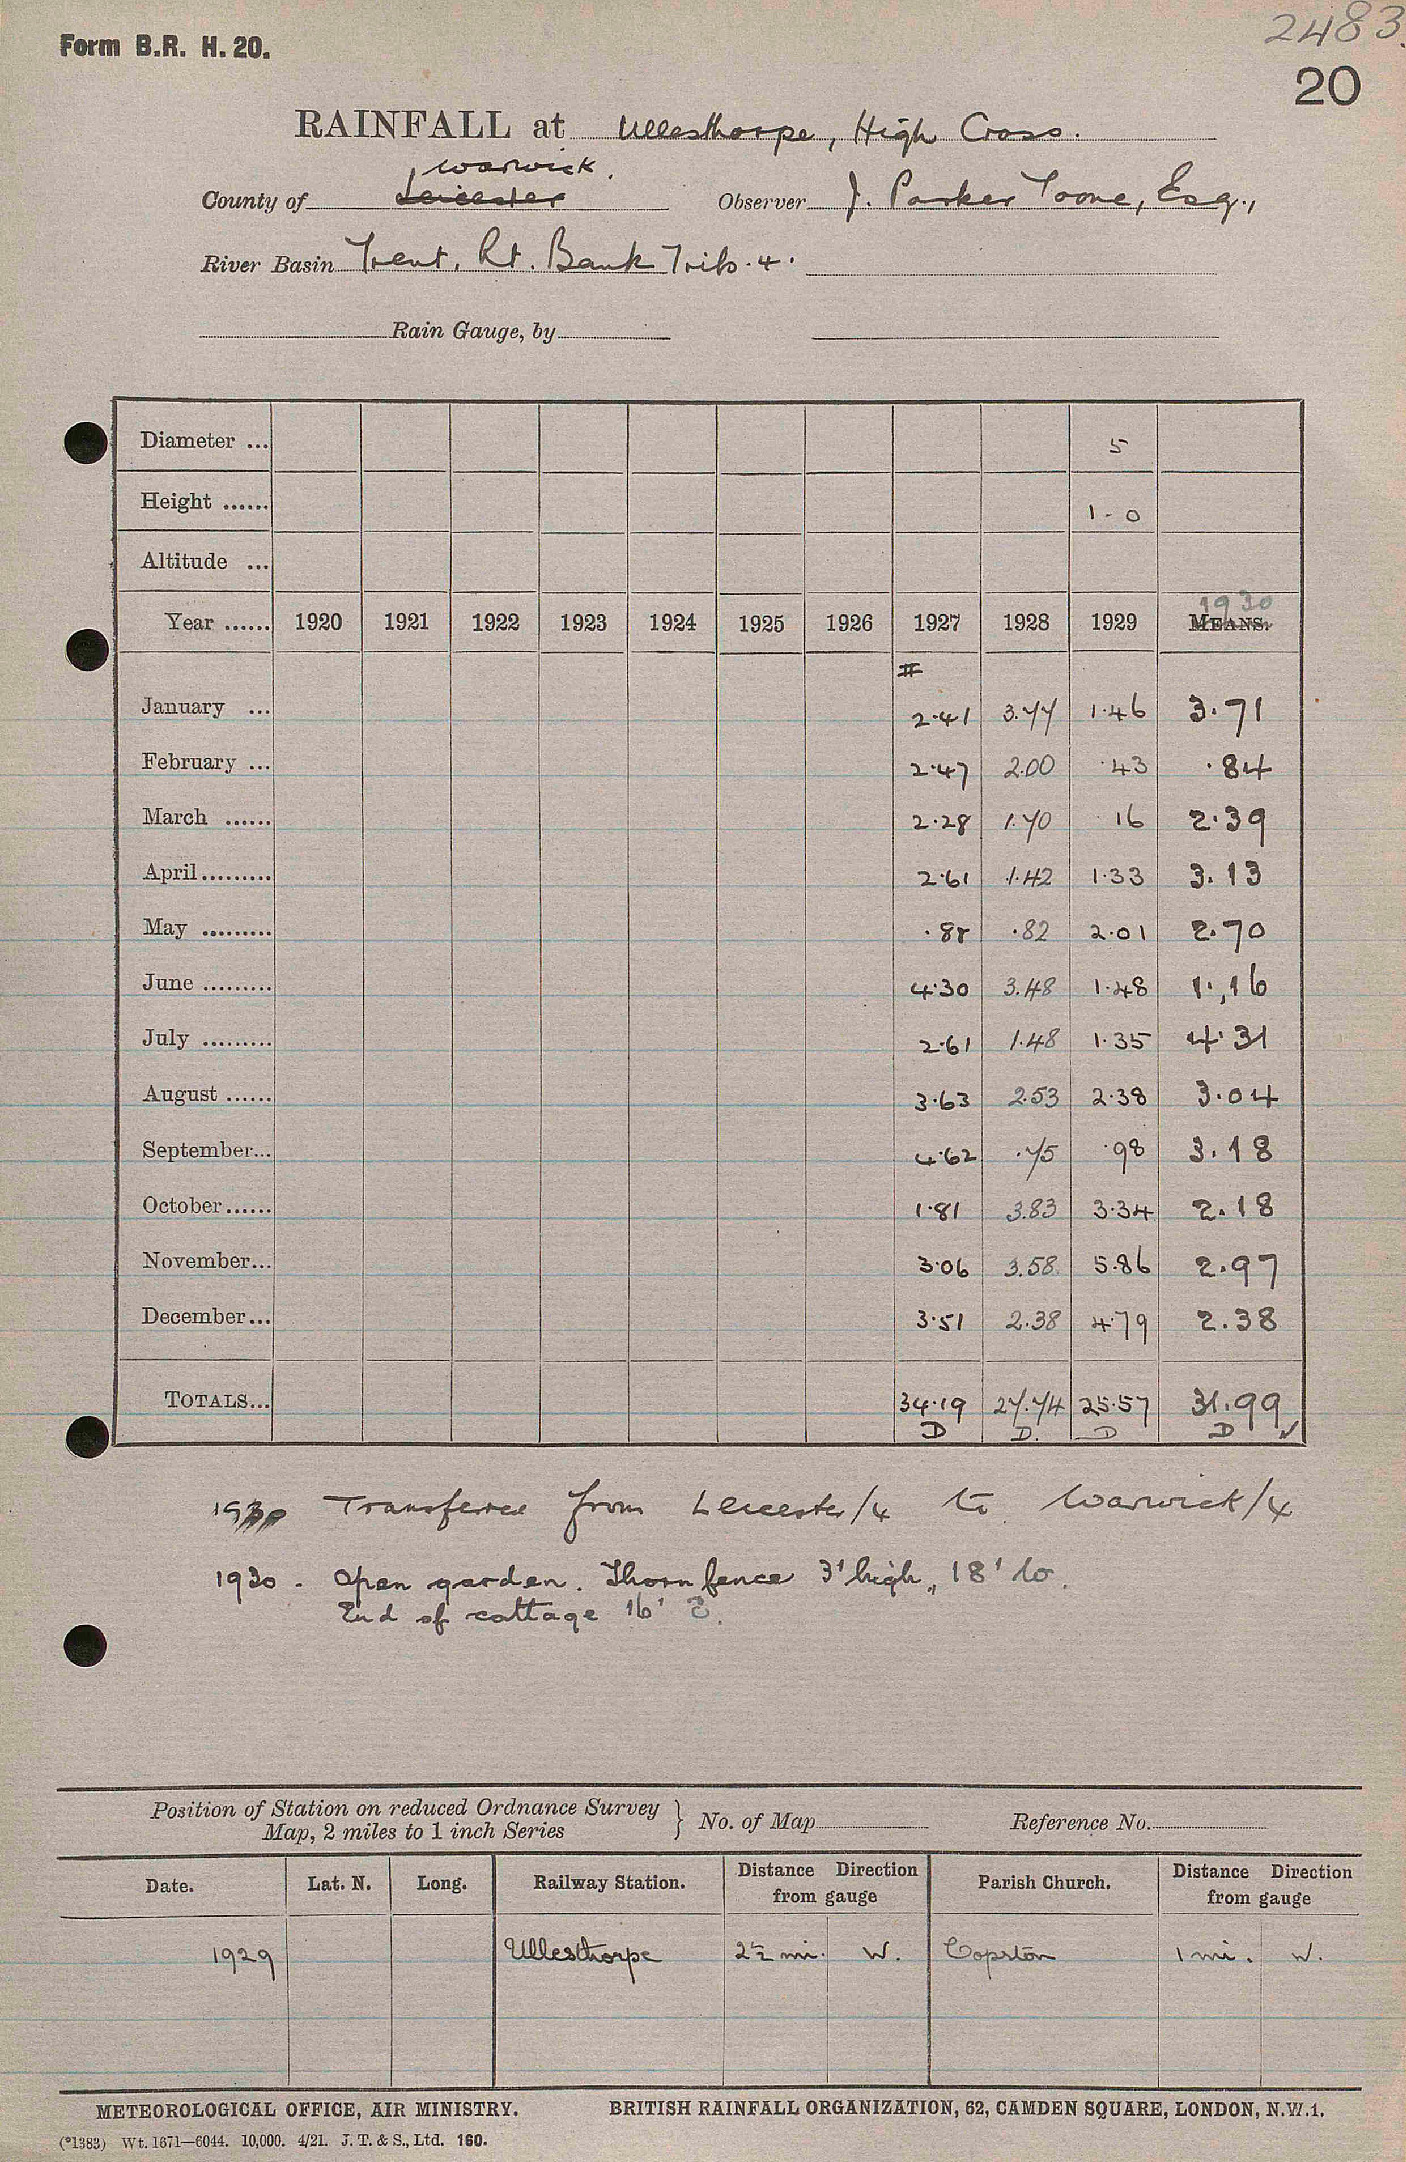 2483.
Form B.R. H. 20.
20
RAINFALL at Ullesthorpe, High Cross.
Warwick.
County of Leicester Observer J. Parker Toone, Esq.,
River Basin Trent. Rt. Bank Tribs. 4.
Rain Gauge, by
Diameter ... 5
Height ...... 1-0
Altitude ...
1930
Year ...... 1920 1921 1922 1923 1924 1925 1926 1927 1928 1929 MEANS.
January ... 2·41 3.77 1·46 3.71
February ... 2·47 2.00 ·43 ·84
March ...... 2·28 1.70 16 2·39
April ......... 2·61 1.42 1·33 3.13
May ......... ·88 ·82 2·01 2.70
June ......... 4·30 3.48 1·48 1.16
July ......... 2·61 1.48 1·35 4·31
August ...... 3·63 2.53 2·38 3.04
September... 4·62 ·75 ·98 3.18
October...... 1·81 3.83 3·34 2.18
November... 3·06 3.58 5.86 2.97
December... 3·51 2.38 4·79 2.38
TOTALS... 34·19 27.74 25·57 31.99
D D. D D ✓
1930 Transferred from Leicester/4 to Warwick/4
1930. Open garden. Thorn fence 3' high, 18' to.
End of cottage 16'
Position of Station on reduced Ordnance Survey
Map, 2 miles to 1 inch Series } No. of Map Reference No.
Date. Lat. N. Long. Railway Station. Distance Direction from gauge Parish Church. Distance Direction from gauge
1929 Ullesthorpe 2½ mi. W. Copston 1 mi. W.
METEOROLOGICAL OFFICE, AIR MINISTRY. BRITISH RAINFALL ORGANIZATION, 62, CAMDEN SQUARE, LONDON, N.W.1.
(*1383) Wt. 1671—6044. 10,000. 4/21. J. T. & S., Ltd. 160.